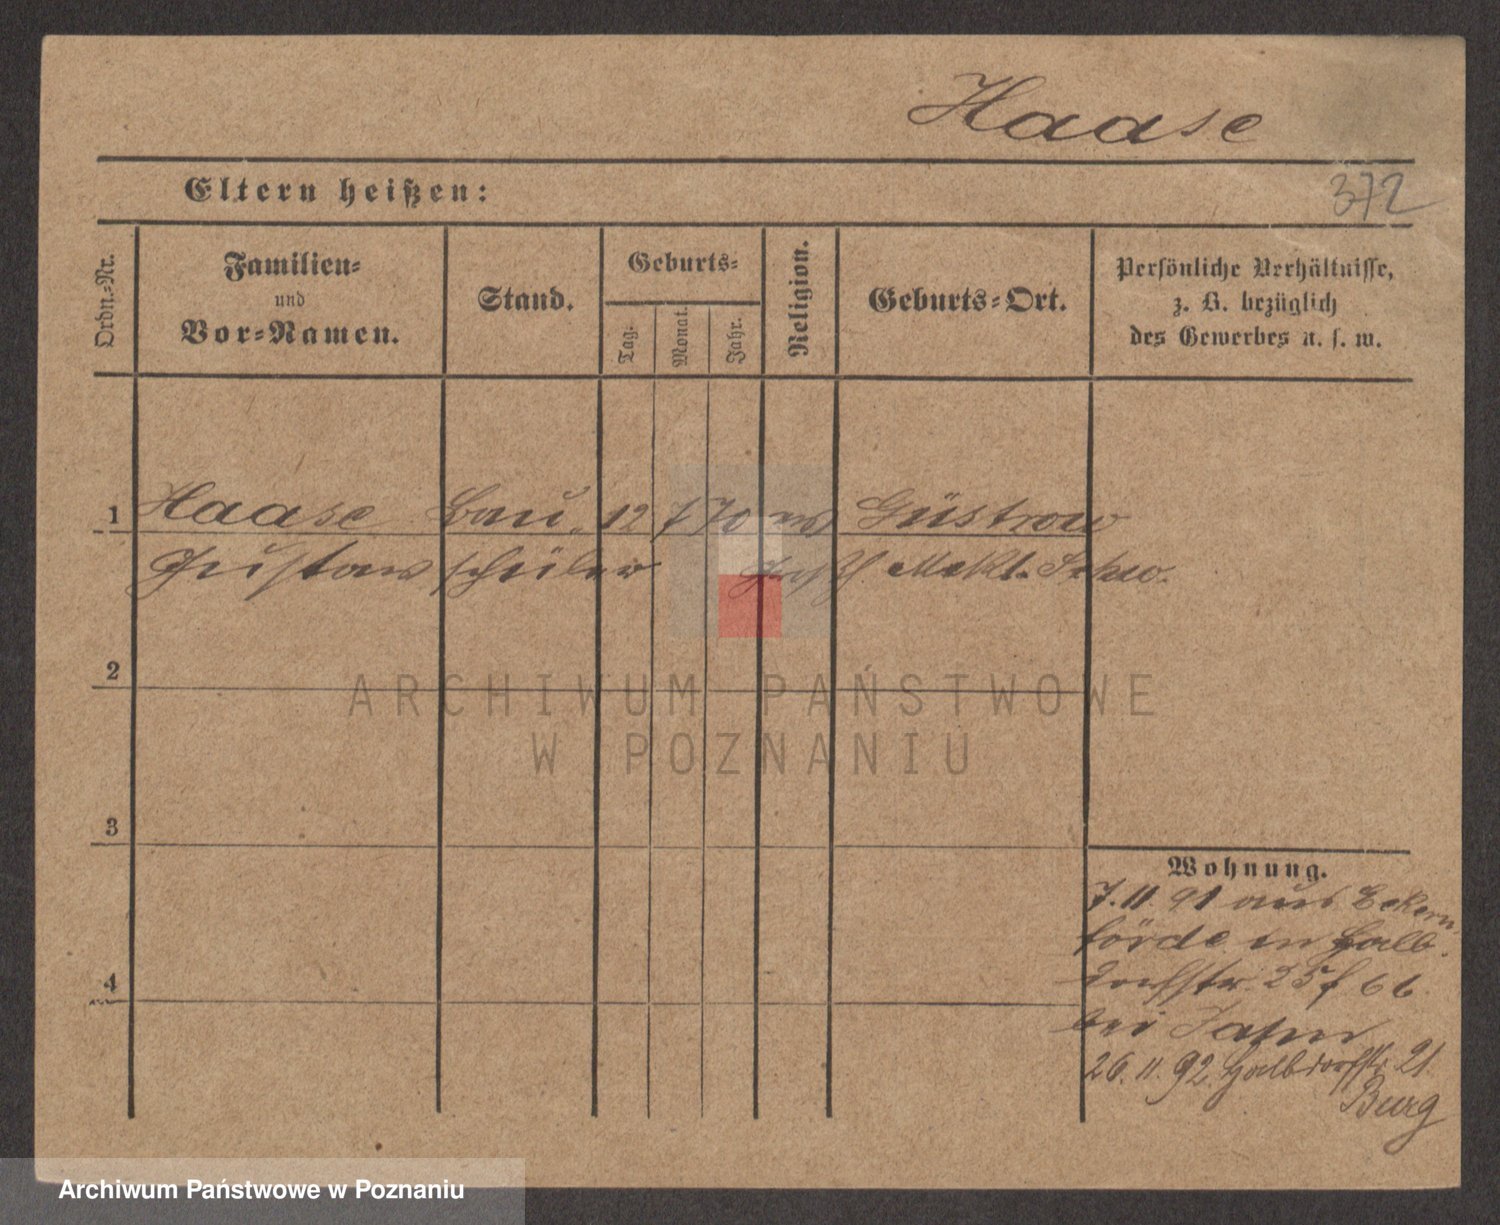 Haase
Eltern heißen:
372
Ordn.-Nr.
Familien-
und
Vor-Namen.
Stand.
Geburts-
Tag.
Monat.
Jahr.
Religion.
Geburts-Ort.
Persönliche Verhältnisse,
z. B. bezüglich
des Gewerbes u. s. w.
1 Haase Bau- 12 7 70 ev Güstrow
Gustav schüler Meckl. Schw.
2
ARCHIWUM PAŃSTWOWE
W POZNANIU
3
Wohnung.
7.11.91 aus Eckern
förde in Halb-
dorfstr. 25 f 66
bei Jahn
26.11.92 Halbdorfstr 21
Burg
4
Archiwum Państwowe w Poznaniu